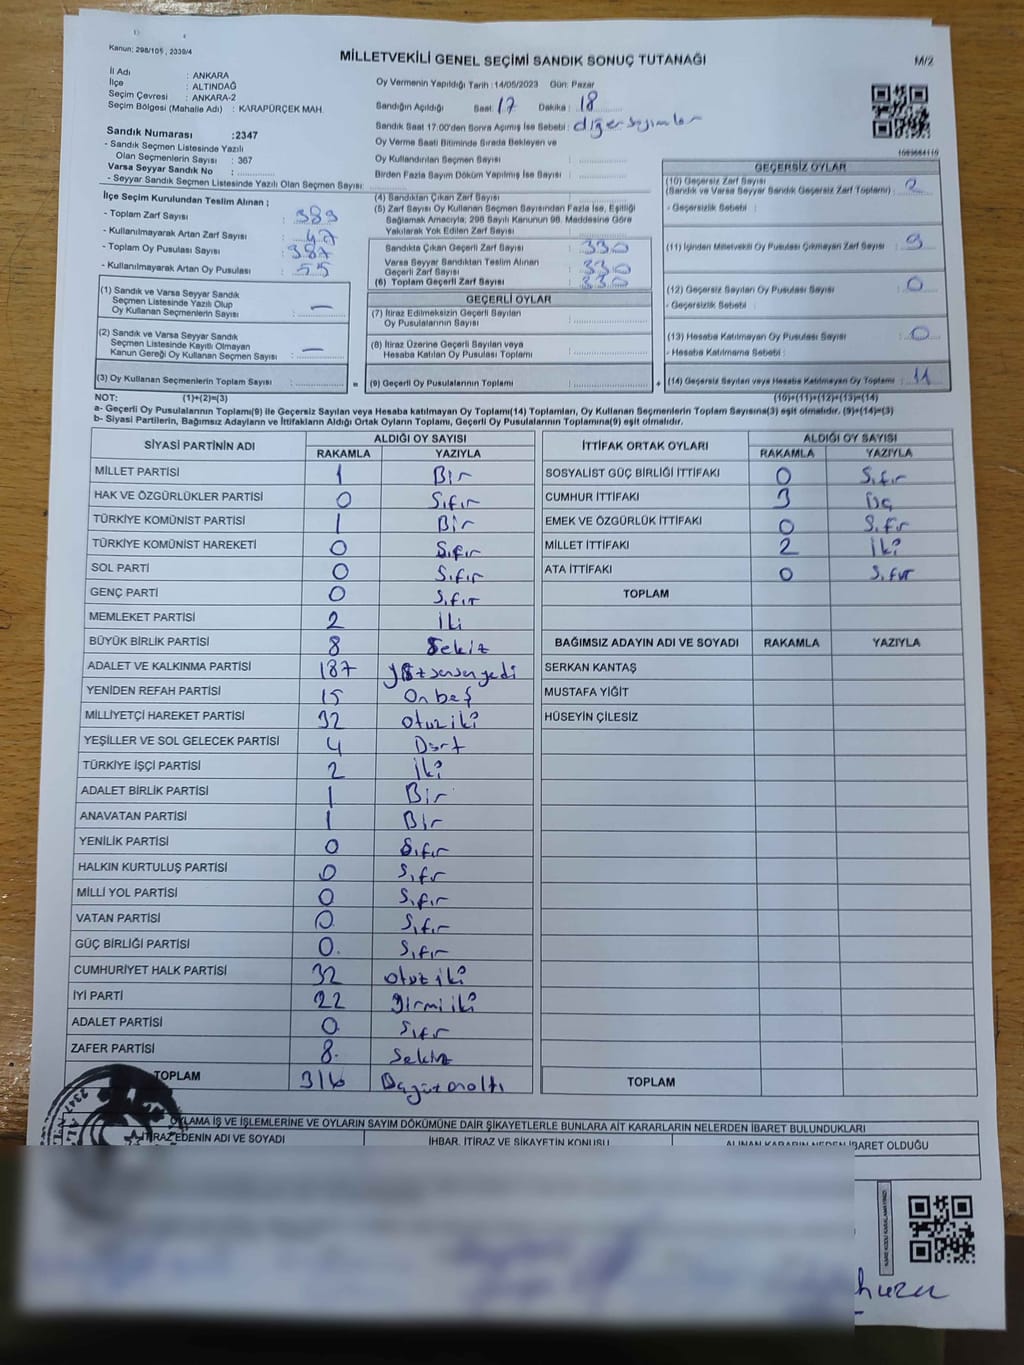 Kanun: 298/105 , 2339/4
MİLLETVEKİLİ GENEL SEÇİMİ SANDIK SONUÇ TUTANAĞI
M/2
İl Adı : ANKARA
İlçe : ALTINDAĞ
Seçim Çevresi : ANKARA-2
Seçim Bölgesi (Mahalle Adı) : KARAPÜRÇEK MAH.
Oy Vermenin Yapıldığı Tarih : 14/05/2023 Gün: Pazar
Sandığın Açıldığı Saat: 17 Dakika : 18
Sandık Saat 17:00'den Sonra Açımış İse Sebebi : diğer seçimler
Oy Verme Saati Bitiminde Sırada Bekleyen ve
Oy Kullandırılan Seçmen Sayısı :
Birden Fazla Sayım Döküm Yapılmış İse Sayısı :
Sandık Numarası :2347
- Sandık Seçmen Listesinde Yazılı
Olan Seçmenlerin Sayısı : 367
Varsa Seyyar Sandık No :
- Seyyar Sandık Seçmen Listesinde Yazılı Olan Seçmen Sayısı:
İlçe Seçim Kurulundan Teslim Alınan ;
- Toplam Zarf Sayısı : 389
- Kullanılmayarak Artan Zarf Sayısı : 47
- Toplam Oy Pusulası Sayısı : 387
- Kullanılmayarak Artan Oy Pusulası : 55
(1) Sandık ve Varsa Seyyar Sandık
Seçmen Listesinde Yazılı Olup
Oy Kullanan Seçmenlerin Sayısı : —
(2) Sandık ve Varsa Seyyar Sandık
Seçmen Listesinde Kayıtlı Olmayan
Kanun Gereği Oy Kullanan Seçmen Sayısı : —
(3) Oy Kullanan Seçmenlerin Toplam Sayısı :
(4) Sandıktan Çıkan Zarf Sayısı :
(5) Zarf Sayısı Oy Kullanan Seçmen Sayısından Fazla İse, Eşitliği
Sağlamak Amacıyla; 298 Sayılı Kanunun 98. Maddesine Göre
Yakılarak Yok Edilen Zarf Sayısı :
Sandıkta Çıkan Geçerli Zarf Sayısı : 330
Varsa Seyyar Sandıktan Teslim Alınan
Geçerli Zarf Sayısı : 330
(6) Toplam Geçerli Zarf Sayısı : 330
GEÇERLİ OYLAR
(7) İtiraz Edilmeksizin Geçerli Sayılan
Oy Pusulalarının Sayısı :
(8) İtiraz Üzerine Geçerli Sayılan veya
Hesaba Katılan Oy Pusulası Toplamı :
= (9) Geçerli Oy Pusulalarının Toplamı :
1089684110
GEÇERSİZ OYLAR
(10) Geçersiz Zarf Sayısı
(Sandık ve Varsa Seyyar Sandık Geçersiz Zarf Toplamı) : 2
- Geçersizlik Sebebi :
(11) İçinden Milletvekili Oy Pusulası Çıkmayan Zarf Sayısı : 9
(12) Geçersiz Sayılan Oy Pusulası Sayısı : 0
- Geçersizlik Sebebi :
(13) Hesaba Katılmayan Oy Pusulası Sayısı : 0
- Hesaba Katılmama Sebebi :
+ (14) Geçersiz Sayılan veya Hesaba Katılmayan Oy Toplamı : 11
NOT: (1)+(2)=(3) (10)+(11)+(12)+(13)=(14)
a- Geçerli Oy Pusulalarının Toplamı(9) ile Geçersiz Sayılan veya Hesaba katılmayan Oy Toplamı(14) Toplamları, Oy Kullanan Seçmenlerin Toplam Sayısına(3) eşit olmalıdır. (9)+(14)=(3)
b- Siyasi Partilerin, Bağımsız Adayların ve İttifakların Aldığı Ortak Oyların Toplamı, Geçerli Oy Pusulalarının Toplamına(9) eşit olmalıdır.
SİYASİ PARTİNİN ADI ALDIĞI OY SAYISI
RAKAMLA YAZIYLA
MİLLET PARTİSİ 1 Bir
HAK VE ÖZGÜRLÜKLER PARTİSİ 0 Sıfır
TÜRKİYE KOMÜNİST PARTİSİ 1 Bir
TÜRKİYE KOMÜNİST HAREKETİ 0 Sıfır
SOL PARTİ 0 Sıfır
GENÇ PARTİ 0 Sıfır
MEMLEKET PARTİSİ 2 İki
BÜYÜK BİRLİK PARTİSİ 8 Sekiz
ADALET VE KALKINMA PARTİSİ 187
YENİDEN REFAH PARTİSİ 15 On beş
MİLLİYETÇİ HAREKET PARTİSİ 32 otuz iki
YEŞİLLER VE SOL GELECEK PARTİSİ 4 Dört
TÜRKİYE İŞÇİ PARTİSİ 2 İki
ADALET BİRLİK PARTİSİ 1 Bir
ANAVATAN PARTİSİ 1 Bir
YENİLİK PARTİSİ 0 Sıfır
HALKIN KURTULUŞ PARTİSİ 0 Sıfır
MİLLİ YOL PARTİSİ 0 Sıfır
VATAN PARTİSİ 0 Sıfır
GÜÇ BİRLİĞİ PARTİSİ 0. Sıfır
CUMHURİYET HALK PARTİSİ 32 otuz iki
İYİ PARTİ 22 Yirmi iki
ADALET PARTİSİ 0 Sıfır
ZAFER PARTİSİ 8. Sekiz
TOPLAM 316 Üçyüzonaltı
İTTİFAK ORTAK OYLARI ALDIĞI OY SAYISI
RAKAMLA YAZIYLA
SOSYALİST GÜÇ BİRLİĞİ İTTİFAKI 0 Sıfır
CUMHUR İTTİFAKI 3 üç
EMEK VE ÖZGÜRLÜK İTTİFAKI 0 Sıfır
MİLLET İTTİFAKI 2 İki
ATA İTTİFAKI 0 Sıfır
TOPLAM
BAĞIMSIZ ADAYIN ADI VE SOYADI RAKAMLA YAZIYLA
SERKAN KANTAŞ
MUSTAFA YİĞİT
HÜSEYİN ÇİLESİZ
TOPLAM
OYLAMA İŞ VE İŞLEMLERİNE VE OYLARIN SAYIM DÖKÜMÜNE DAİR ŞİKAYETLERLE BUNLARA AİT KARARLARIN NELERDEN İBARET BULUNDUKLARI
İTİRAZ EDENİN ADI VE SOYADI İHBAR, İTİRAZ VE ŞİKAYETİN KONUSU ALINAN KARARIN NEDEN İBARET OLDUĞU